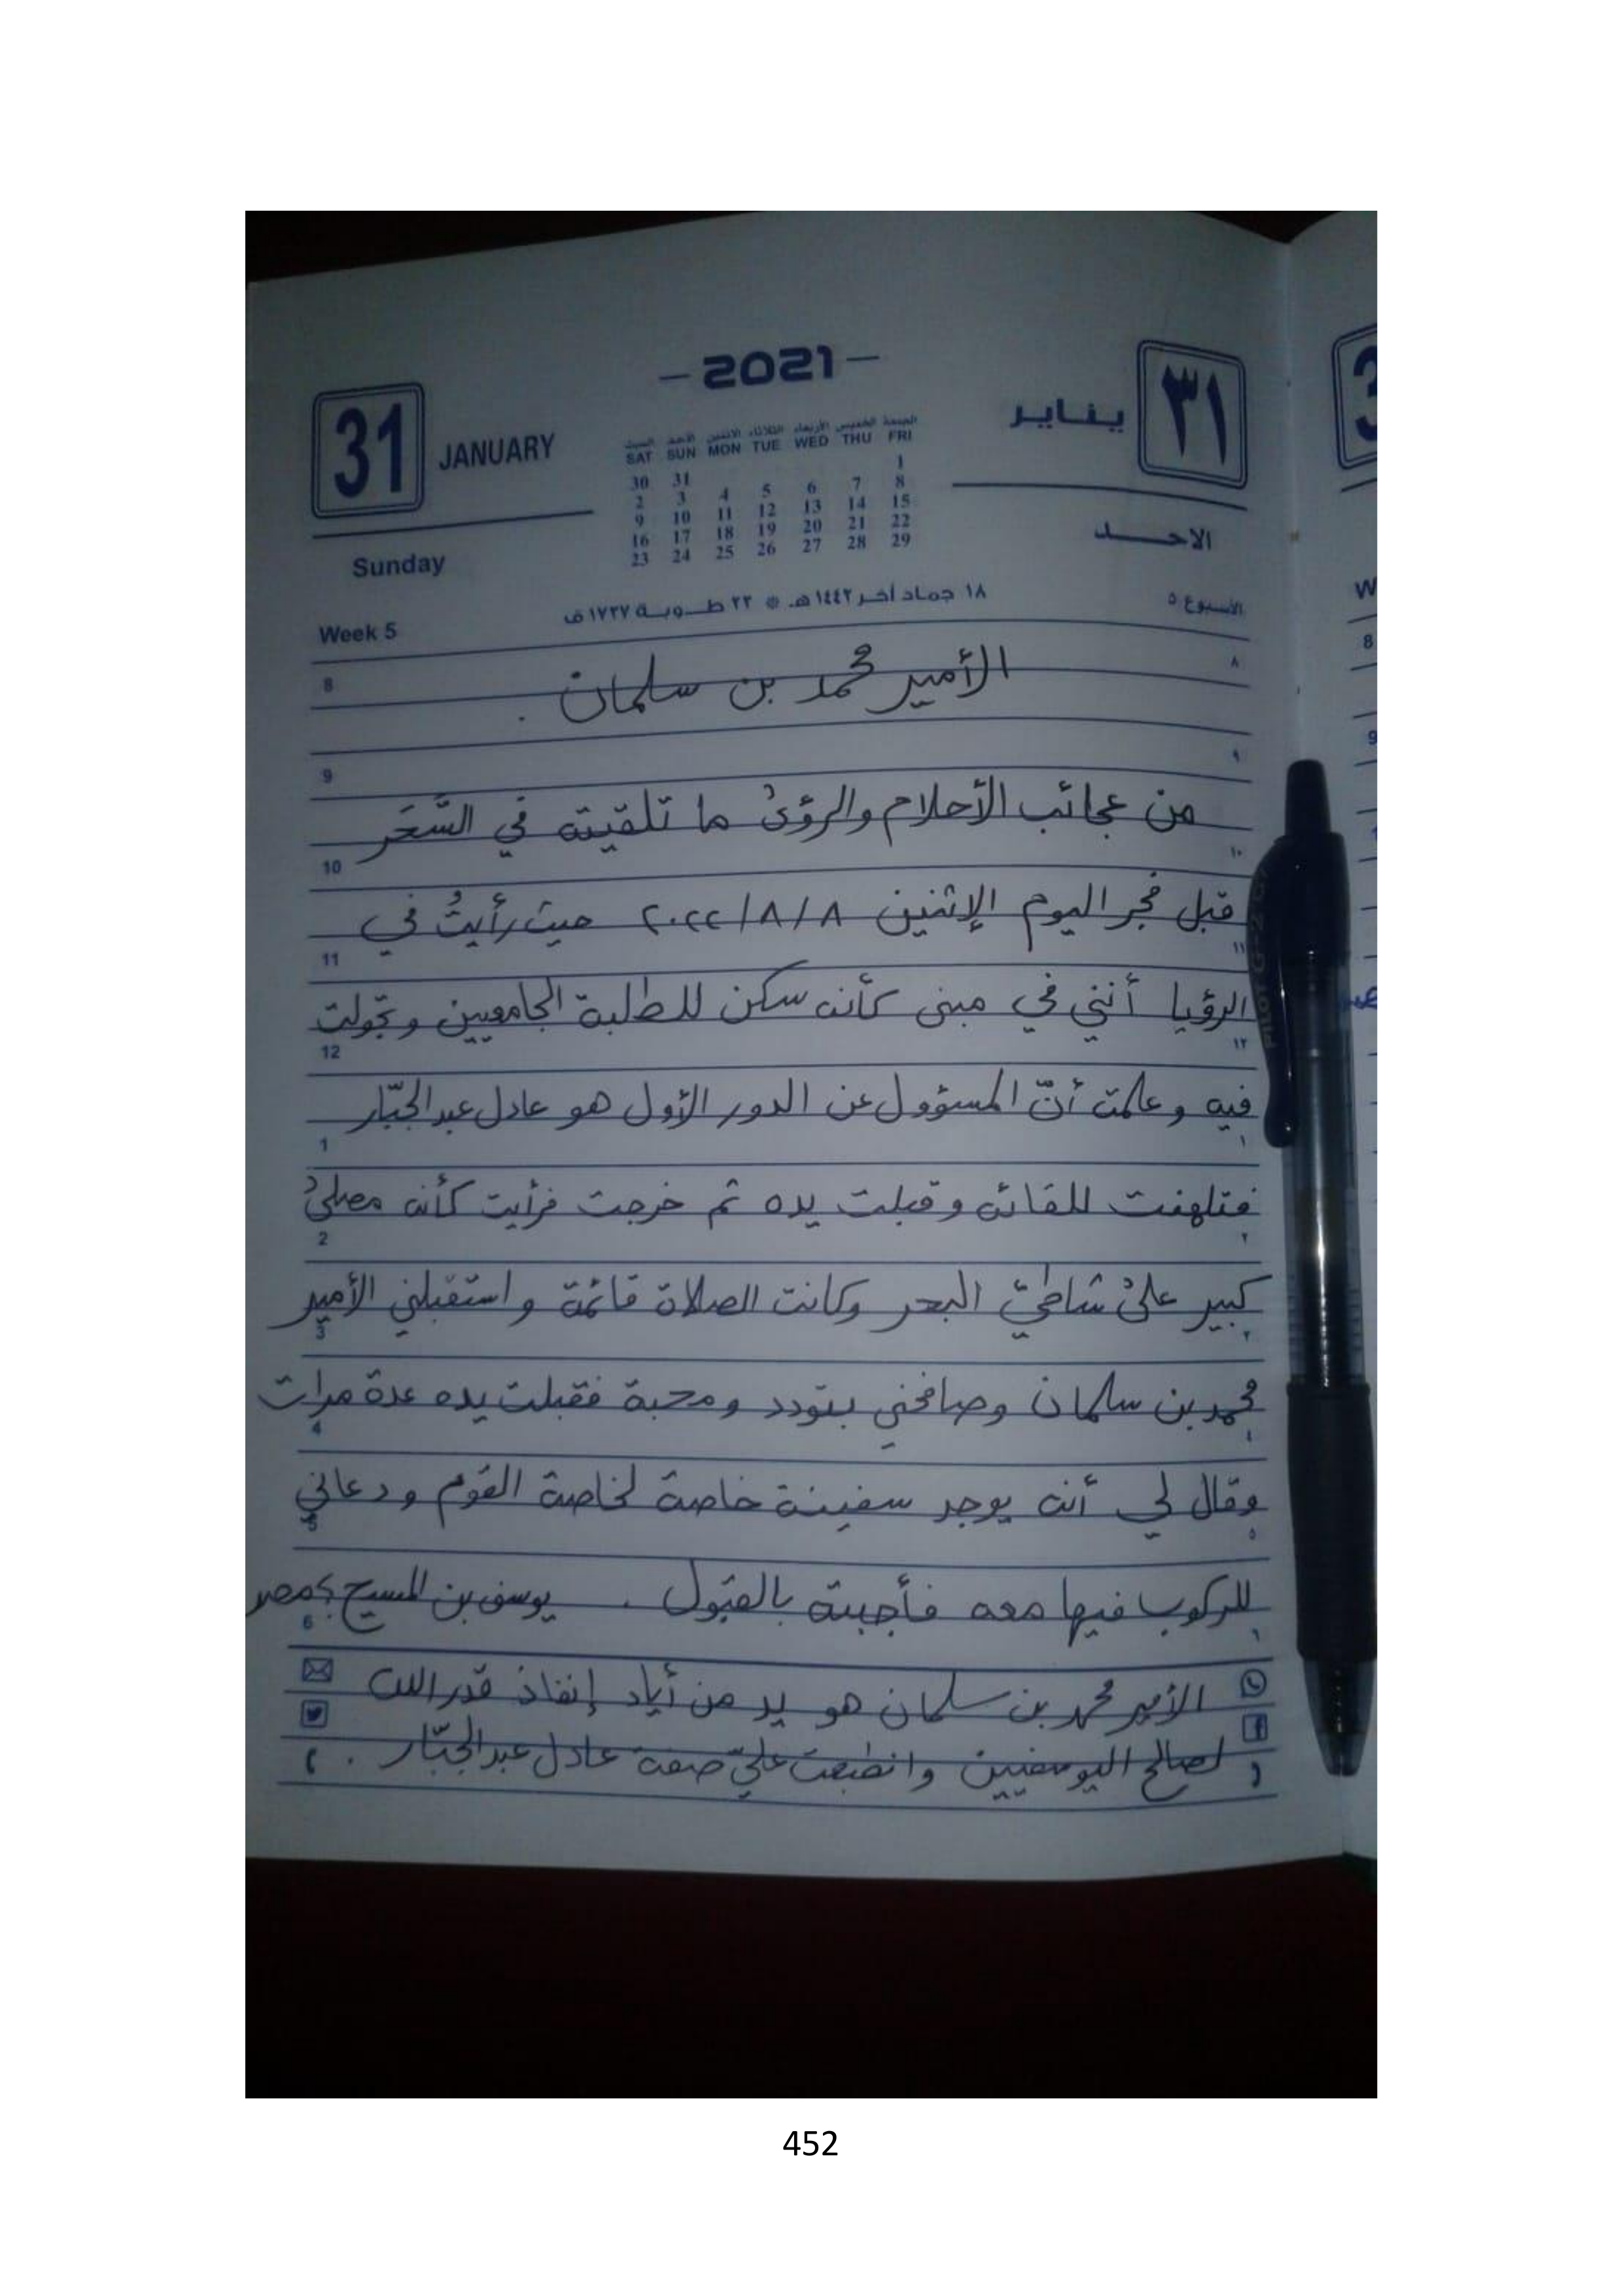 -2021-
31 JANUARY
٣١ يناير
السبت الأحد الاثنين الثلاثاء الأربعاء الخميس الجمعة
SAT SUN MON TUE WED THU FRI
1
30 31
2 3 4 5 6 7 8
9 10 11 12 13 14 15
16 17 18 19 20 21 22
23 24 25 26 27 28 29
Sunday
الاحد
١٨ جماد آخر ١٤٤٢هـ * ٢٣ طوبة ١٧٣٧ق
Week 5
الأسبوع ٥
الأمير محمد بن سلمان .
8 ٨
9 ٩
من عجائب الأحلام والرؤىٰ ما تلقيته في السَّحَر
10 ١٠
قبل فجر اليوم الإثنين ٢٠٢٢/٨/٨ حيث رأيتُ في
11 ١١
الرؤيا أنني في مبنى كأنه سكن للطلبة الجامعيين وتجولت
12 ١٢
فيه وعلمت أنّ المسؤول عن الدور الأول هو عادل عبدالجبّار
1 ١
فتلهفت للقائه وقبلت يده ثم خرجت فرأيت كأنه مصلىٰ
2 ٢
كبير علىٰ شاطئ البحر وكانت الصلاة قائمة واستقبلني الأمير
3 ٣
محمد بن سلمان وصافحني بتودد ومحبة فقبلت يده عدة مرات
4 ٤
وقال لي أنه يوجد سفينة خاصة لخاصة القوم ودعاني
5 ٥
للركوب فيها معه فأجبته بالقبول . يوسف بن المسيح ؑ مصر
6 ٦
الأمير محمد بن سلمان هو يد من أياد إنفاذ قدر الله
لصالح اليوسفيين وانطبعت عليّ صفة عادل عبدالجبّار .
PILOT G-2 07
452